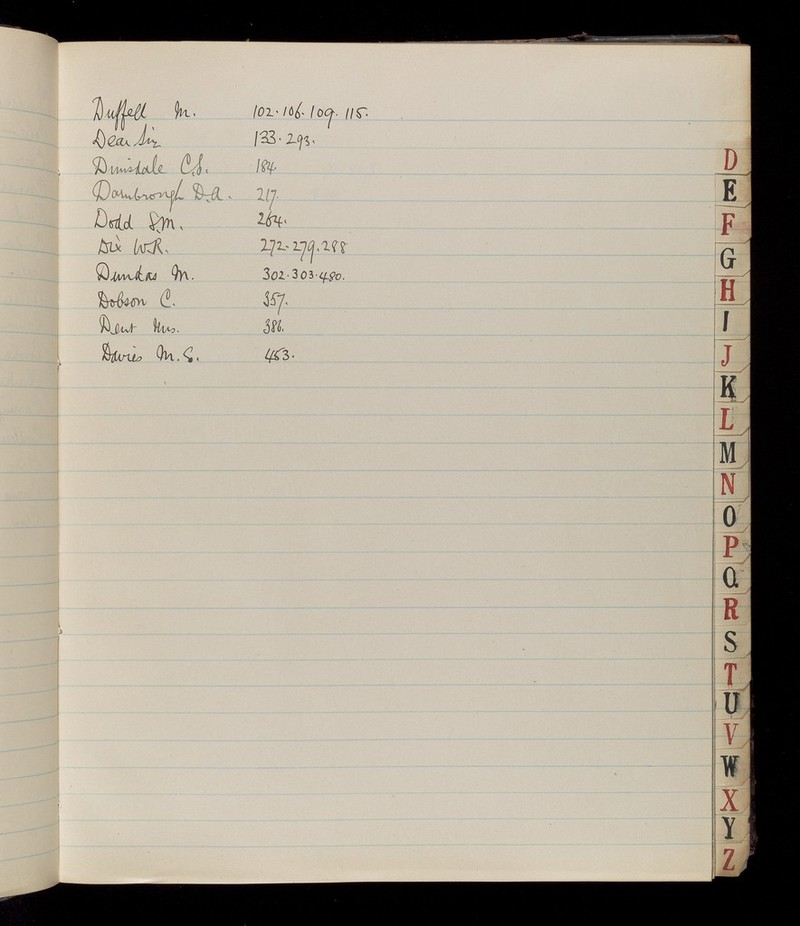 Duffell M. 102. 106. 109. 115.
Dear Sir 133. 293.
Dimsdale C.S. 184.
Dambrough D.A. 217.
Dodd S.M. 264.
Dix W.R. 272. 279. 288
Dundas M. 302. 303. 480.
Dobson C. 357.
Dent Mrs. 386.
Davies M.S. 453.
D
E
F
G
H
I
J
K
L
M
N
O
P
Q
R
S
T
U
V
W
X
Y
Z